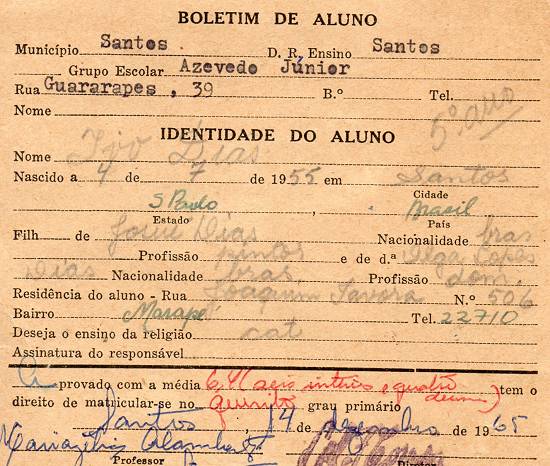 BOLETIM DE ALUNO
Município Santos D. R. Ensino Santos
Grupo Escolar Azevedo Júnior
Rua Guararapes, 39 B.º Tel.
Nome
5º ano
IDENTIDADE DO ALUNO
Nome Dias
Nascido a 4 de 7 de 1955 em Santos
Cidade
S Paulo, Brasil
Estado País
Filh de Dias Nacionalidade bras
Profissão pintor e de d.ª Olga Lopes
Dias Nacionalidade bras. Profissão dom.
Residência do aluno - Rua Joaquim Tavora N.º 506
Bairro Marapé Tel. 22710
Deseja o ensino da religião cat
Assinatura do responsável
Aprovado com a média 6,4 (seis inteiros e quatro décimos) tem o
direito de matricular-se no quinto grau primário
Santos, 14 de dezembro de 1965
Professor